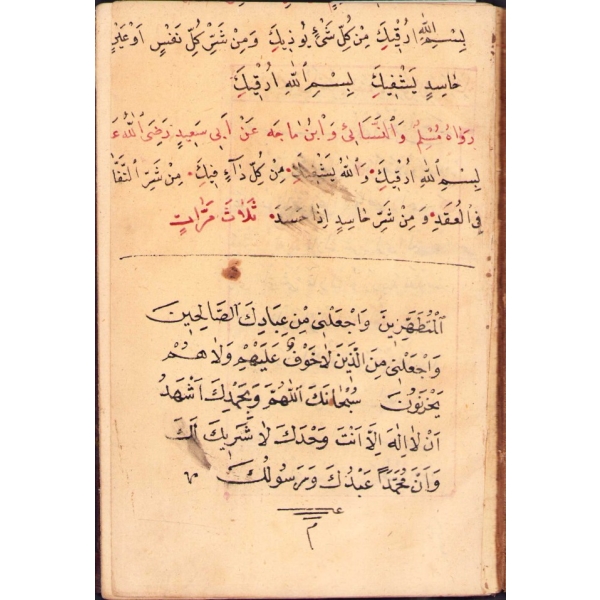 بِسْمِ اللّٰهِ اَرْقِيكَ مِنْ كُلِّ شَيْءٍ يُوذِيكَ وَمِنْ شَرِّ كُلِّ نَفْسٍ اَوْ عَيْنٍ
حَاسِدٍ يَشْفِيكَ بِسْمِ اللّٰهِ اَرْقِيكَ
رَوَاهُ مُسْلِمٌ وَالنَّسَائِي وَابْنُ مَاجَه عَنْ اَبِي سَعِيدٍ رَضِيَ اللّٰهُ
بِسْمِ اللّٰهِ اَرْقِيكَ وَاللّٰهُ يَشْفِيكَ مِنْ كُلِّ دَآءٍ فِيكَ مِنْ شَرِّ
فِي الْعُقَدِ وَمِنْ شَرِّ حَاسِدٍ اِذَا حَسَدَ ثَلَاثَ مَرَّاتٍ
الْمُتَطَهِّرِينَ وَاجْعَلْنِي مِنْ عِبَادِكَ الصَّالِحِينَ
وَاجْعَلْنِي مِنَ الَّذِينَ لَا خَوْفٌ عَلَيْهِمْ وَلَا هُمْ
يَحْزَنُونَ سُبْحَانَكَ اللّٰهُمَّ وَبِحَمْدِكَ اَشْهَدُ
اَنْ لَا اِلٰهَ اِلَّا اَنْتَ وَحْدَكَ لَا شَرِيكَ لَكَ
وَاَنَّ مُحَمَّدًا عَبْدُكَ وَرَسُولُكَ
م